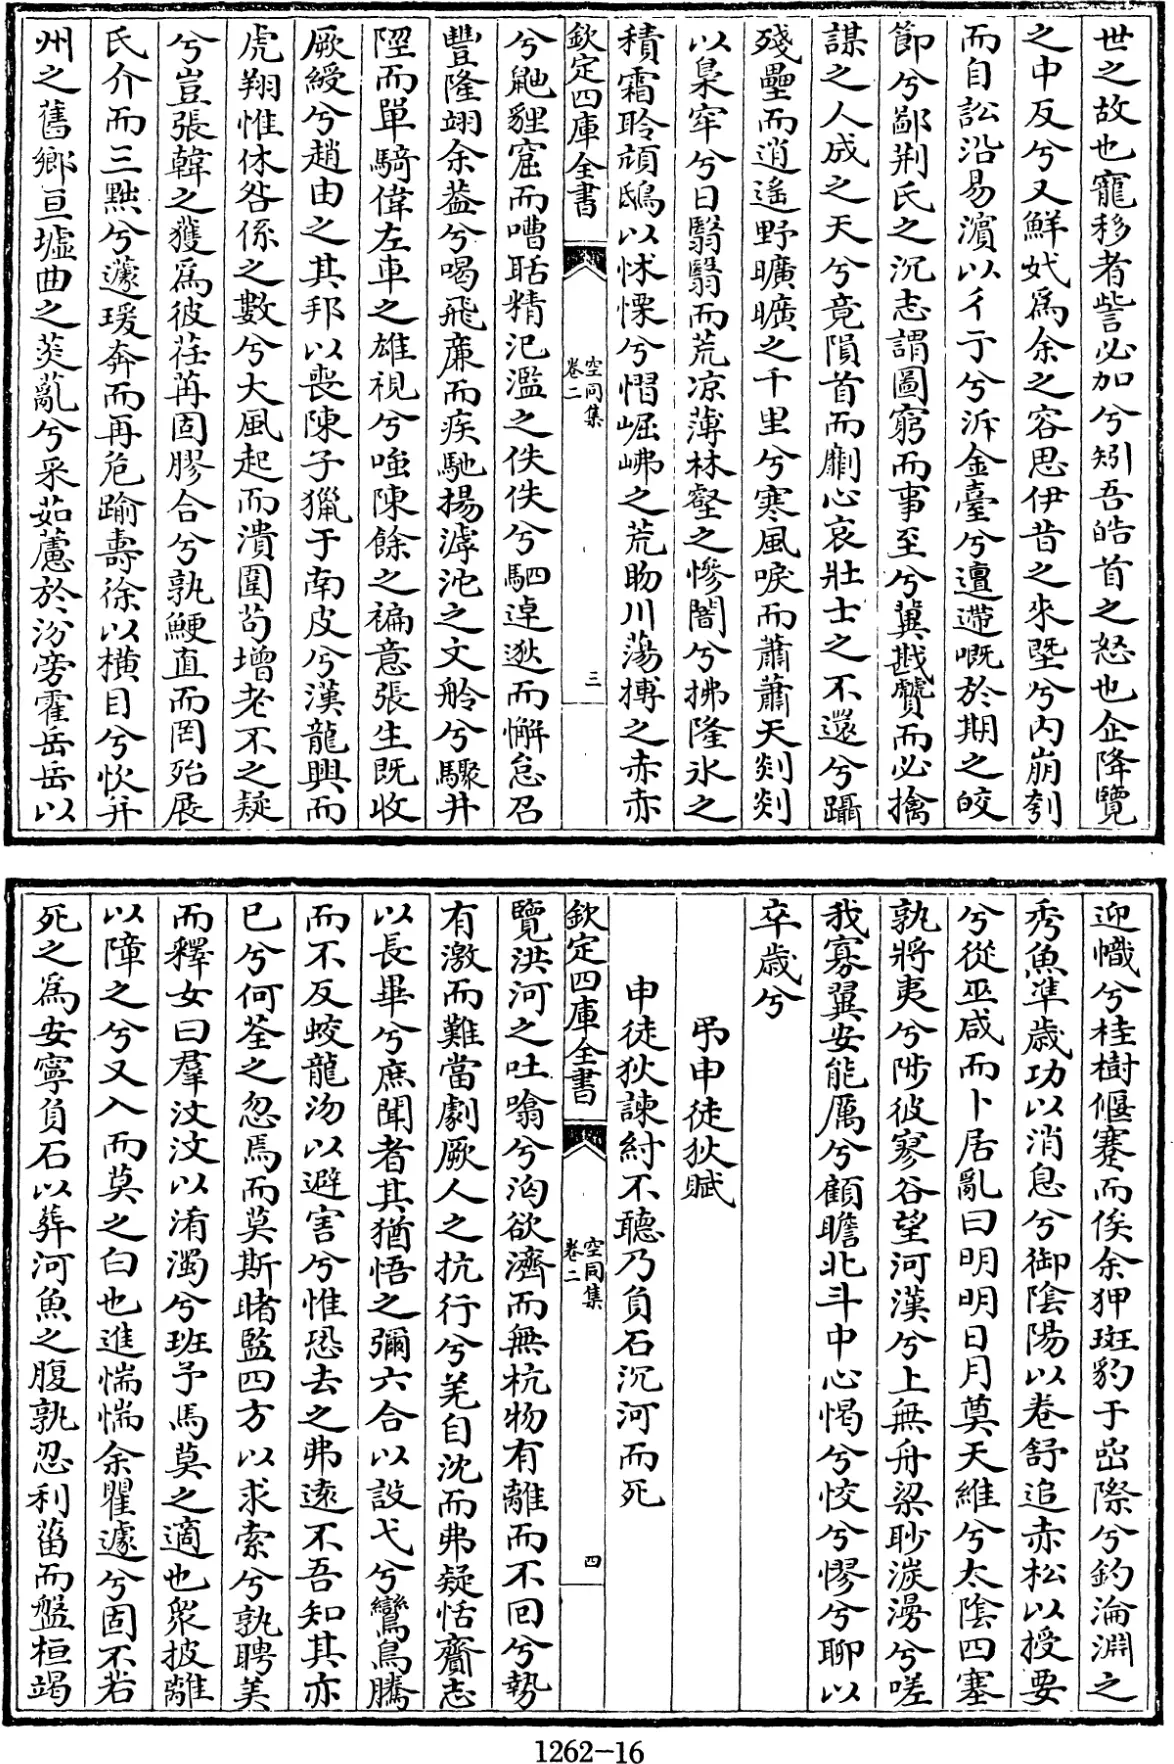 世之故也寵移者訾必加兮矧吾皓首之怒也企降覽
之中反兮又鮮妭爲余之容思伊昔之來墍兮内崩刳
而自訟沿易濵以彳亍兮泝金臺兮邅遰嘅於期之皎
節兮鄙荆氏之沉志謂圖窮而事至兮冀戡贊而必擒
謀之人成之天兮竟隕首而劘心哀壯士之不還兮躡
殘壘而逍遥野曠曠之千里兮寒風唳而蕭蕭天剡剡
以臯窂兮日翳翳而荒凉薄林壑之慘闇兮拂隆氷之
積霜聆頑鴟以怵慄兮慴崛岪之荒昒川蕩搏之赤赤
欽定四庫全書
空同集
卷二
三
兮鼪貍窟而嘈聒精汜濫之佚佚兮駟逴逖而懈怠召
豐隆翊余葢兮喝飛亷而疾馳揚滹沱之文舲兮驟井
陘而單騎偉左車之雄視兮嗤陳餘之褊意張生既收
厥綬兮趙由之其邦以喪陳子獵于南皮兮漢龍興而
虎翔惟休咎係之數兮大風起而潰圍苟增老不之疑
兮豈張韓之獲爲彼荏苒固膠合兮孰鯁直而罔殆展
氏介而三黜兮蘧瑗奔而再危踰壽徐以横目兮恢并
州之舊鄉亘墟曲之莢亂兮采茹藘於汾旁霍岳岳以
迎幟兮桂樹偃蹇而俟余狎斑豹于嵒際兮釣淪淵之
秀魚凖歲功以消息兮御陰陽以卷舒追赤松以授要
兮從巫咸而卜居亂曰明明日月奠天維兮太陰四塞
孰將夷兮陟彼寥谷望河漢兮上無舟梁眇淚漫兮嗟
我寡翼安能厲兮顧瞻北斗中心愒兮恔兮憀兮聊以
卒歲兮
弔申徒狄賦
申徒狄諫紂不聽乃負石沉河而死
欽定四庫全書
空同集
卷二
四
覽洪河之吐噏兮洶欲濟而無杭物有離而不回兮勢
有激而難當劇厥人之抗行兮羌自沈而弗疑恬齎志
以長畢兮庶聞者其猶悟之彌六合以設弋兮鸞鳥騰
而不反蛟龍沕以避害兮惟恐去之弗遠不吾知其亦
已兮何荃之忽焉而莫斯睹監四方以求索兮孰聘美
而釋女曰羣汶汶以淆濁兮班予馬莫之適也衆披離
以障之兮又入而莫之白也進惴惴余瞿遽兮固不若
死之爲安寧負石以葬河魚之腹孰忍利菑而盤桓竭
1262-16